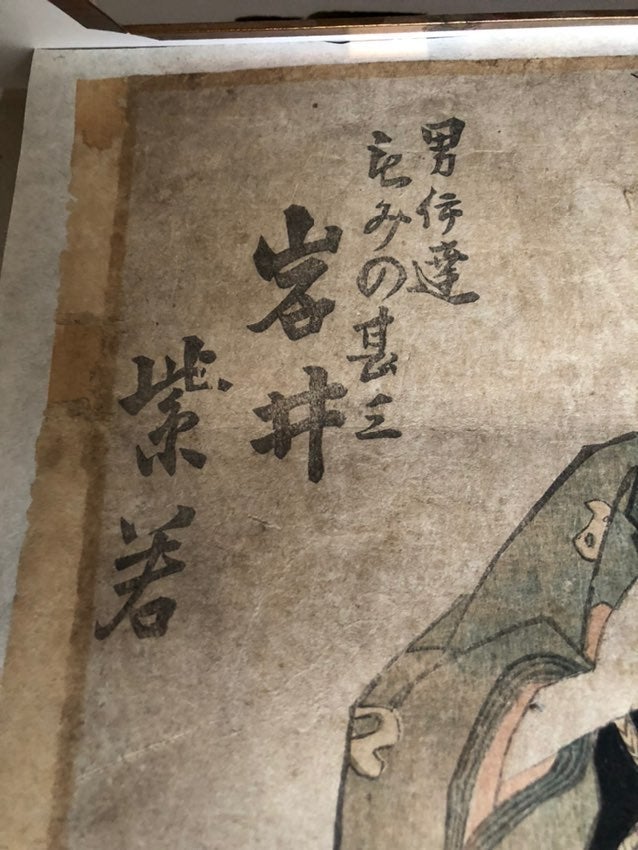 男伊達
もみの甚三
岩井
紫若